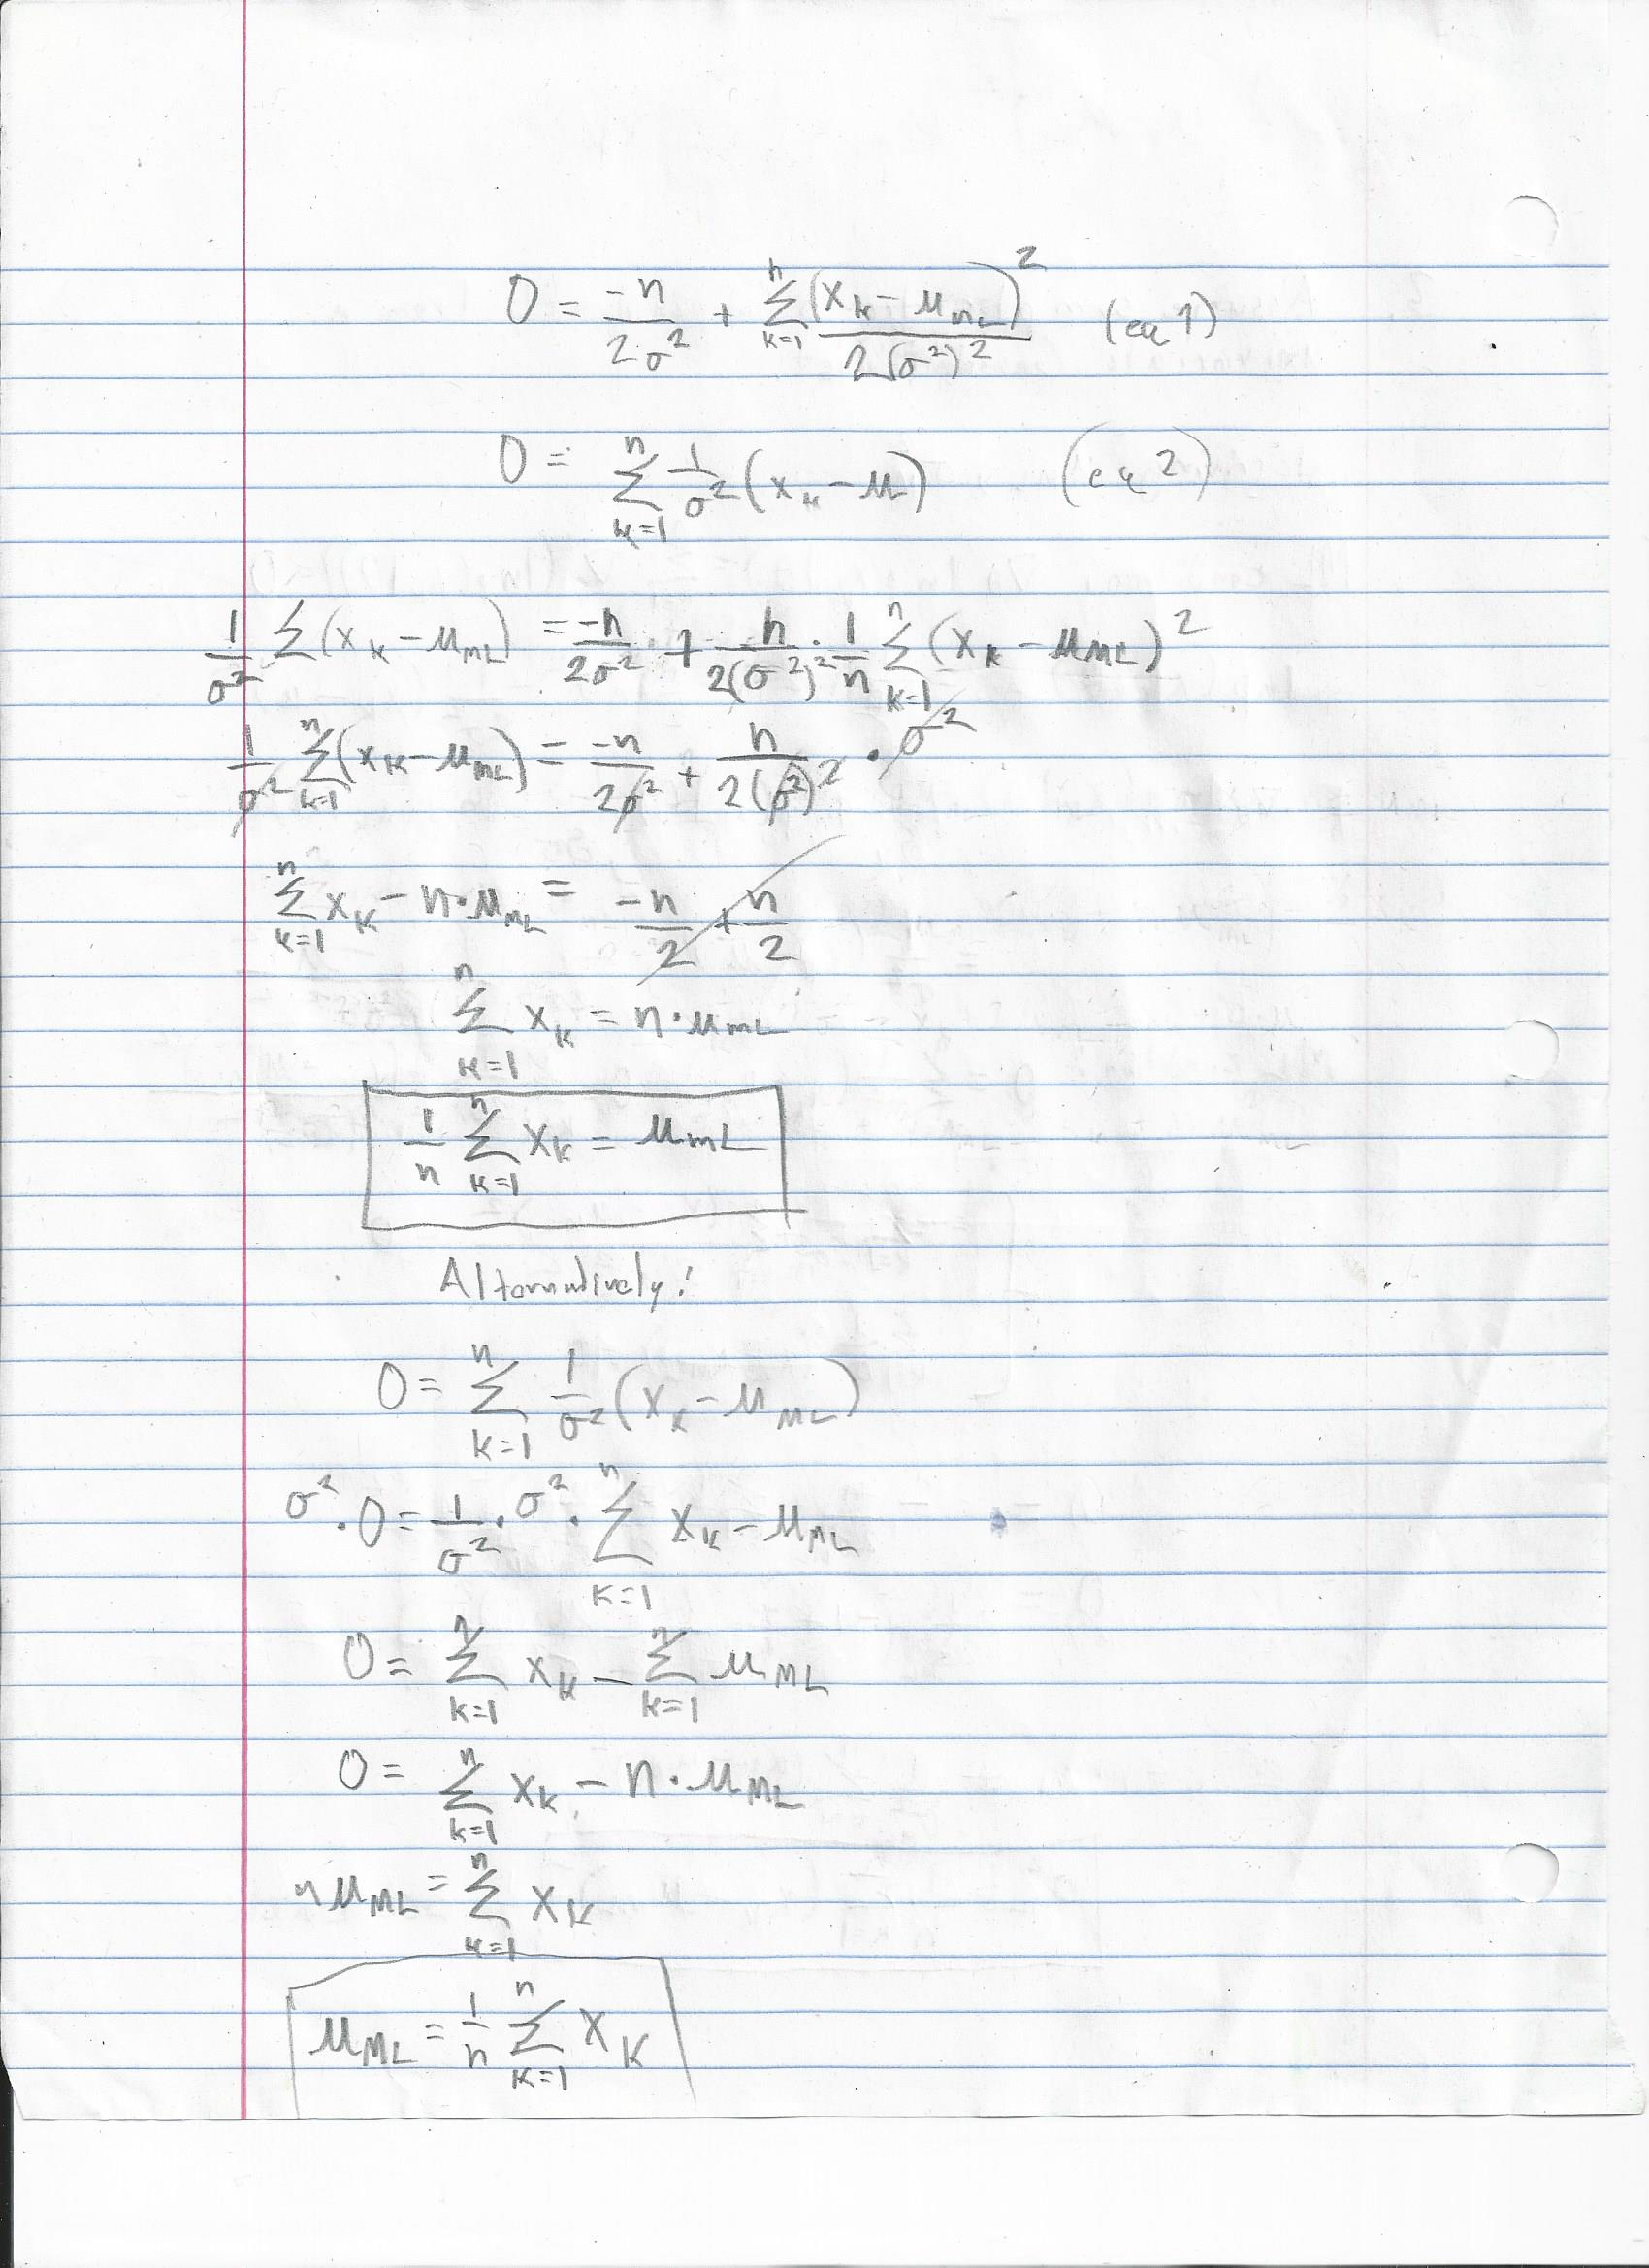 0 = -n/2σ² + Σ_{k=1}^{n} (x_k - μ_{ML})² / 2(σ²)² (eq 1)
0 = Σ_{k=1}^{n} 1/σ² (x_k - μ) (eq 2)
1/σ² Σ(x_k - μ_{ML}) = -n/2σ² + n/2(σ²)² · 1/n Σ_{k=1}^{n} (x_k - μ_{ML})²
1/σ² Σ_{k=1}^{n} (x_k - μ_{ML}) = -n/2σ² + n/2(σ²)² · σ²
Σ_{k=1}^{n} x_k - n·μ_{ML} = -n/2 + n/2
Σ_{k=1}^{n} x_k = n·μ_{ML}
1/n Σ_{k=1}^{n} x_k = μ_{ML}
Alternatively:
0 = Σ_{k=1}^{n} 1/σ² (x_k - μ_{ML})
σ² · 0 = 1/σ² · σ² · Σ_{k=1}^{n} x_k - μ_{ML}
0 = Σ_{k=1}^{n} x_k - Σ_{k=1}^{n} μ_{ML}
0 = Σ_{k=1}^{n} x_k - n·μ_{ML}
nμ_{ML} = Σ_{k=1}^{n} x_k
μ_{ML} = 1/n Σ_{k=1}^{n} x_k